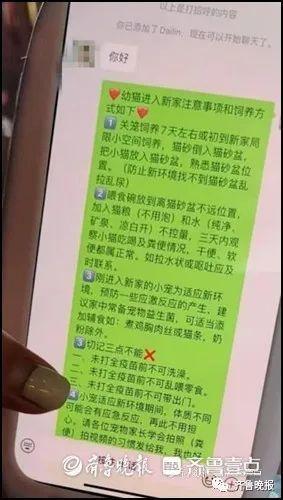 以上是打招呼的内容
你已添加了 Dailin，现在可以开始聊天了。
你好
❤️幼猫进入新家注意事项和饲养方
式如下❤️
1️⃣ 关笼饲养7天左右或初到新家局
限小空间饲养，猫砂倒入猫砂盆，
把小猫放入猫砂盆，熟悉猫砂盆位
置。（防止新环境找不到猫砂盆乱
拉乱尿）
2️⃣喂食碗放到离猫砂盆不远位置，
加入猫粮（不用泡）和水（纯净、
矿泉、凉白开）不控量，三天内观
察小猫吃喝及粪便情况，干便、软
便都属正常。如拉水状或呕吐应及
时联系。
3️⃣刚进入新家的小宠为适应新环
境，预防一些应激反应的产生，建
议家中常备宠物益生菌，可适当添
加辅食如：煮鸡胸肉丝或猫条，奶
粉除外。
3️⃣切记三点不能❌
一、未打全疫苗前不可洗澡。
二、未打全疫苗前不可乱喂零食。
三、未打全疫苗前不可带出门。
4️⃣小宠适应新环境期间，体质不同
可能会有应急反应，再此不用担
心。请各位宠物家长学会拍照（粪
便）拍视频的习惯发给我，我也
齐鲁晚报
齐鲁壹点
齐鲁晚报